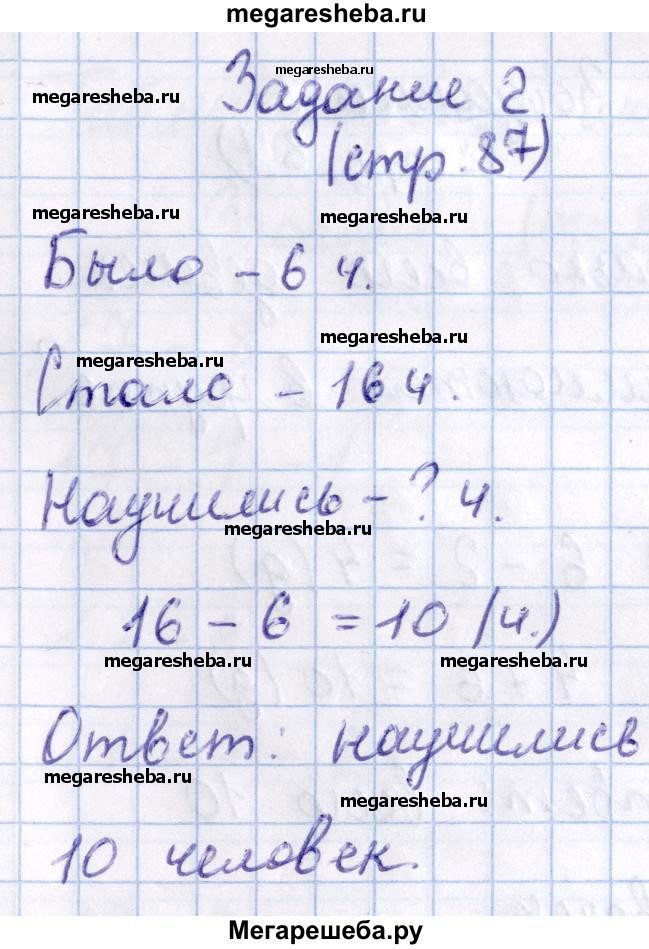 megaresheba.ru
megaresheba.ru
megaresheba.ru
Задание 2
(стр. 87)
megaresheba.ru
megaresheba.ru
Было – 6 ч.
megaresheba.ru
megaresheba.ru
Стало – 16 ч.
Научились – ? ч.
megaresheba.ru
16 – 6 = 10 (ч.)
megaresheba.ru
megaresheba.ru
Ответ: научились
megaresheba.ru
megaresheba.ru
10 человек.
Мегарешеба.ру